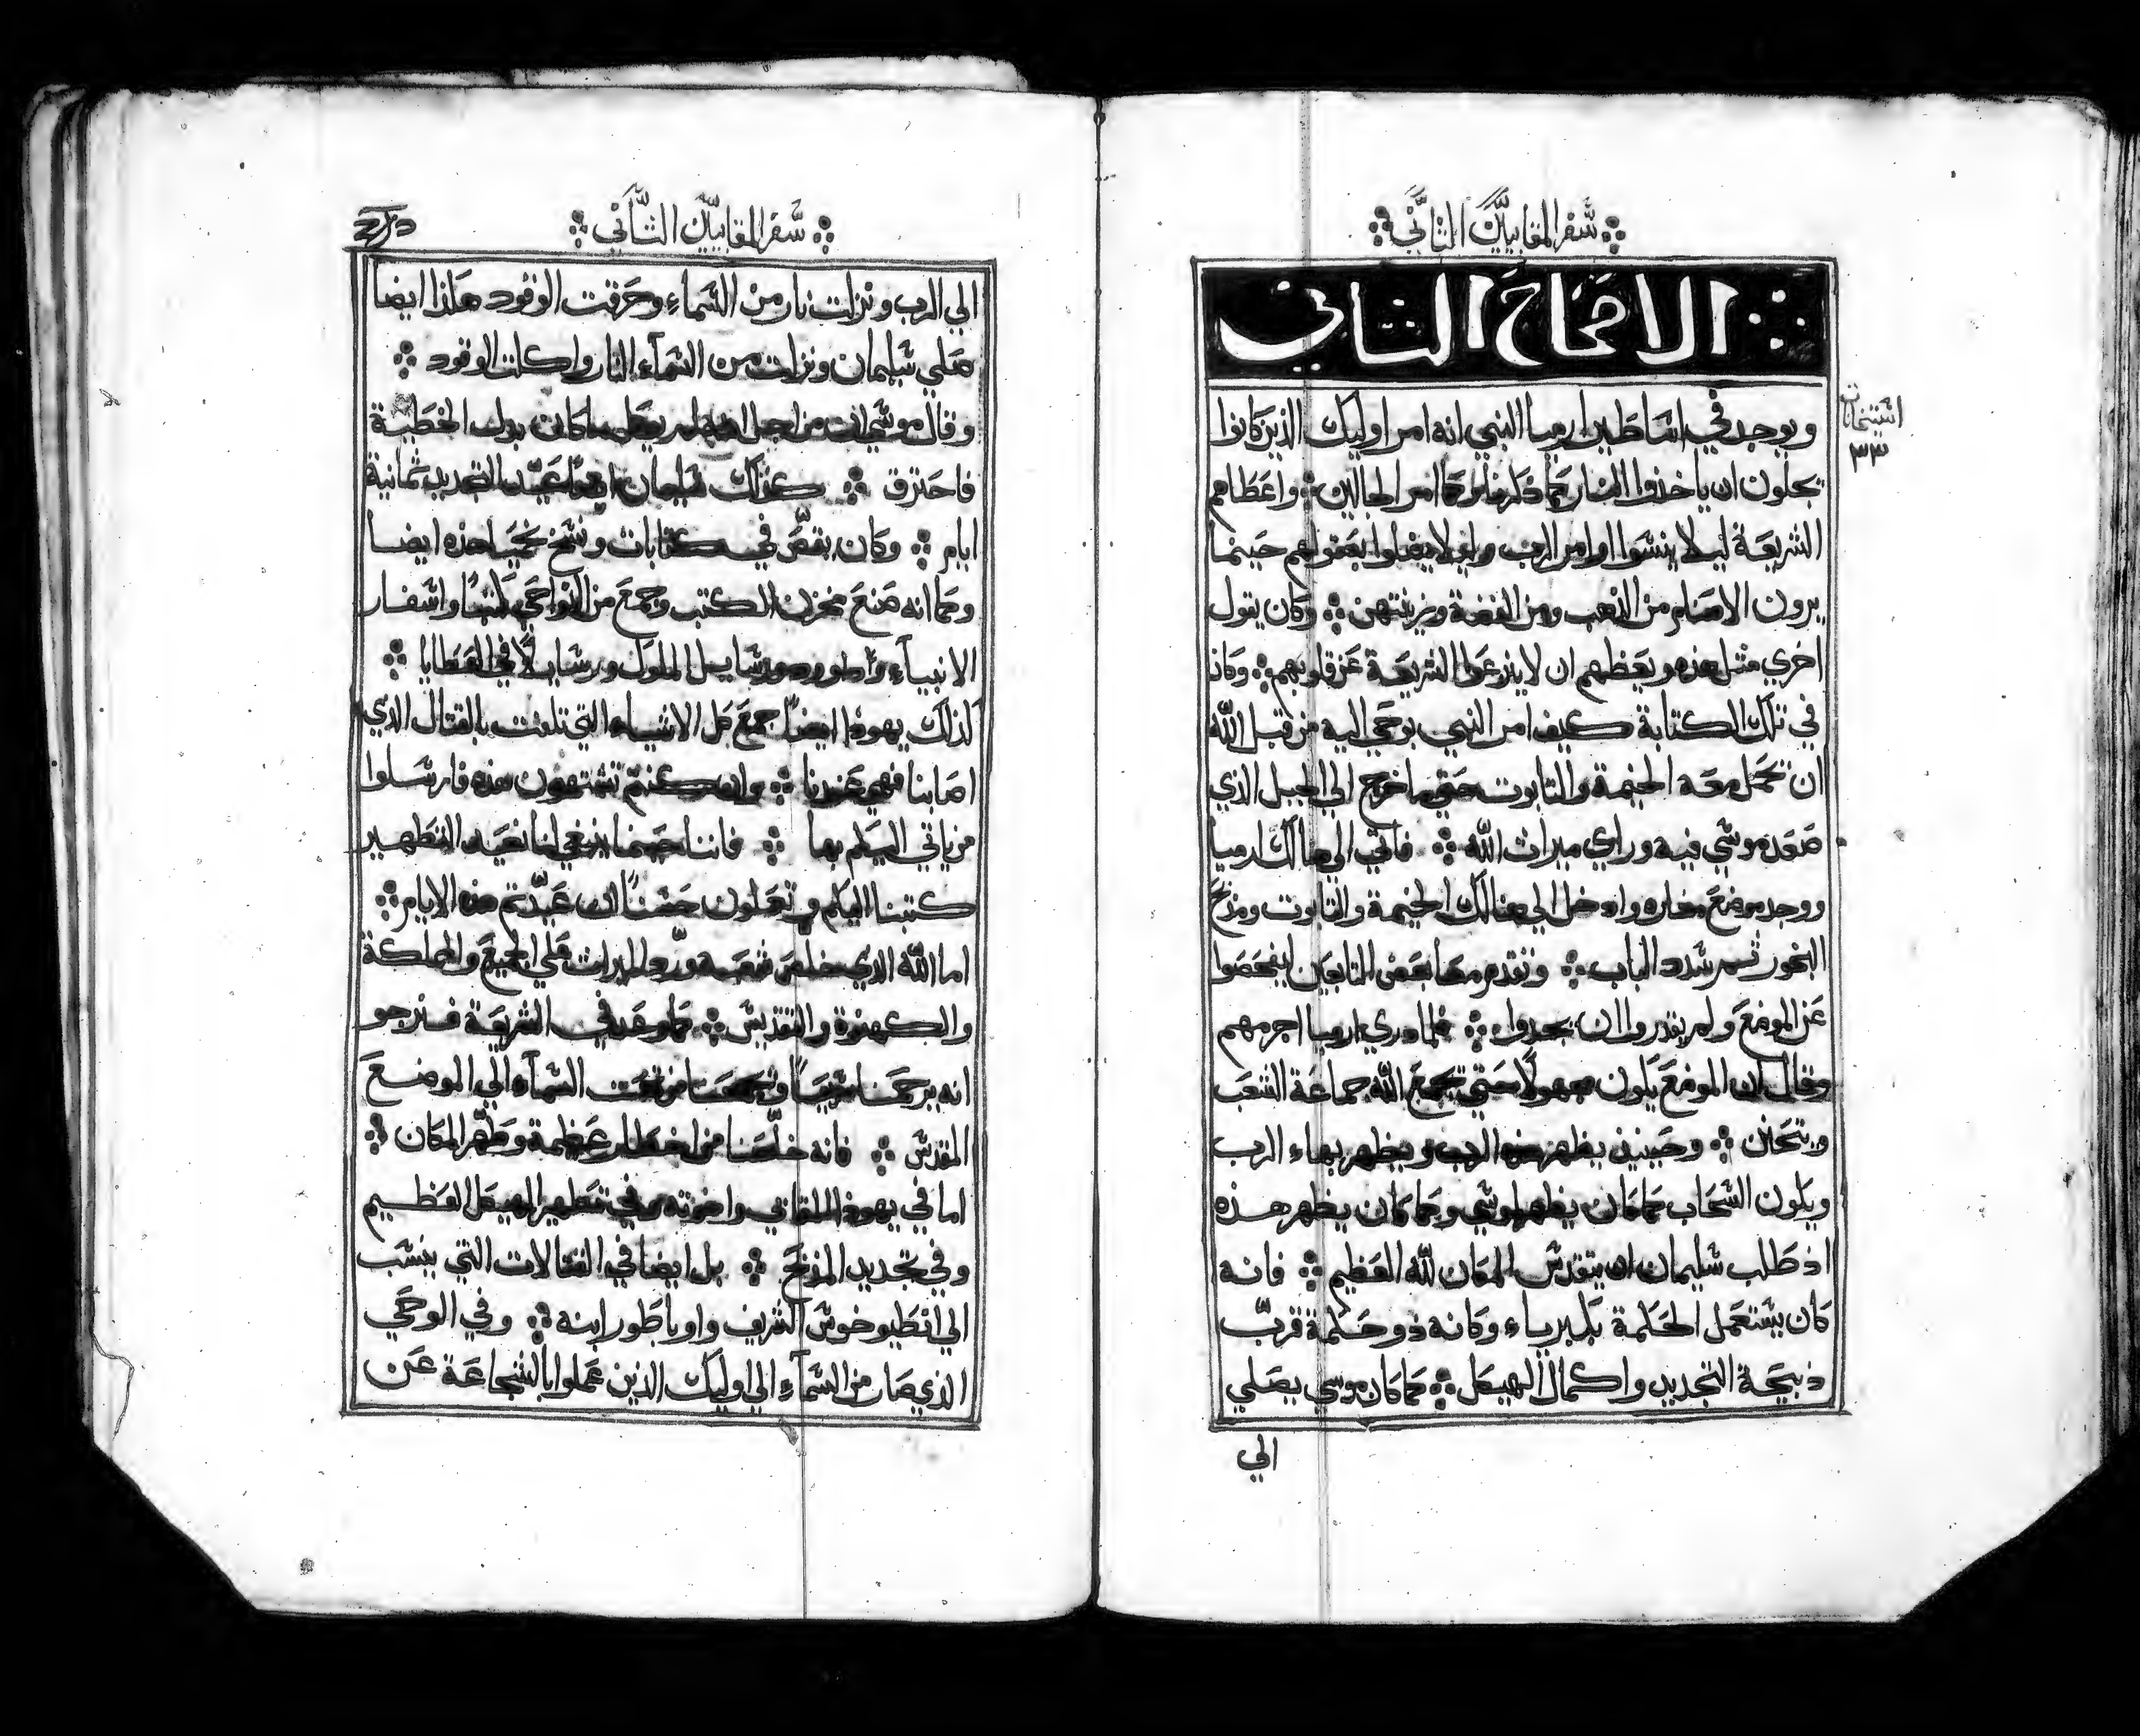 سفر المقابيين الثاني
الاصحاح الثاني
ويوجد في اساطين ارميا النبي انه امر اوليك الذين كانوا
يجلون ان ياخذوا النار كما ذكرنا وكما امر الجالين واعطاهم
الشريعة ليلا ينسوا اوامر الرب وليلا يضلوا بعقولهم حينما
يرون الاصنام من الذهب ومن الفضة وزينتهن وكان يقول
اخري مثل هذه ويعظهم ان لا ينزعوا الشريعة عن قلوبهم وكان
في تلك الكتابة كيف امر النبي بوحي اليه من قبل الله
ان تحمل معه الخيمة والتابوت حتي ما خرج الي الجبل الذي
صعد موسي فيه وراي ميراث الله فاتي الي هنالك ارميا
ووجد موضع مغاره وادخل الي هنالك الخيمة والتابوت ومذبح
البخور ثم سدد الباب وتقدم معا بعض التابعين ليفحصوا
عن الموضع ولم يقدروا ان يجدوا فلما دري ارميا اجرمهم
وقال ان الموضع يكون مجهولا حتي تجمع الله جماعة الشعب
ويتحنن وحينيذ يظهر هذه الرب ويظهر بهاء الرب
ويكون السحاب كما كان يظهر لموسي وكما كان يظهر هذه
اذ طلب سليمان ان يتقدس المكان لله العظيم فانه
كان يستعمل الحكمة بكبرياء وكانه ذو حكمة قرب
ذبيحة التجديد واكمال الهيكل كما كان موسي يصلي
الي
استثنا
٣٣
سفر المقابيين الثاني
الي الرب ونزلت نار من السماء وحرقت الوقود هكذا ايضا
صلي سليمان ونزلت من السماء النار واكلت الوقود
وقال موسي ان من اجل انه لم يوكل ما كان بدل الخطية
فاحترق كذلك سليمان ايضا عيد التجديد ثمانية
ايام وكان يقص في كتابات ونسخ نحميا هذه ايضا
وكما انه صنع مخزن الكتب وجمع من النواحي كتبا واسفار
الانبياء وداوود ورسايل الملوك ورسايلا في العطايا
كذلك يهوذا ايضا جمع كل الاشياء التي تلفت بالقتال الذي
اصابنا فهي عندنا وان كنتم تشتهون هذه فارسلوا
من ياتي اليكم بها فاننا حينما ينبغي لنا نعيد التطهير
كتبنا اليكم وتعملون حسنا ان عيدتم هذه الايام
اما الله الذي خلص شعبه ورد الميراث علي الجميع والمملكة
والكهنوة والتقديس كما وعد في الشريعة فنرجو
انه يرحمنا سريعا وتجمعنا من تحت السماء الي الموضع
المقدس فانه خلصنا من اخطار عظيمة وطهر المكان
اما في يهوذا المقابي واخوته وفي تطهير الهيكل العظيم
وفي تجديد المذبح بل ايضا في القتالات التي ينسب
الي انطيوخوس الشريف واوباطور ابنه وفي الوحي
الذي صار من السماء الي اوليك الذين عملوا بالشجاعة عن